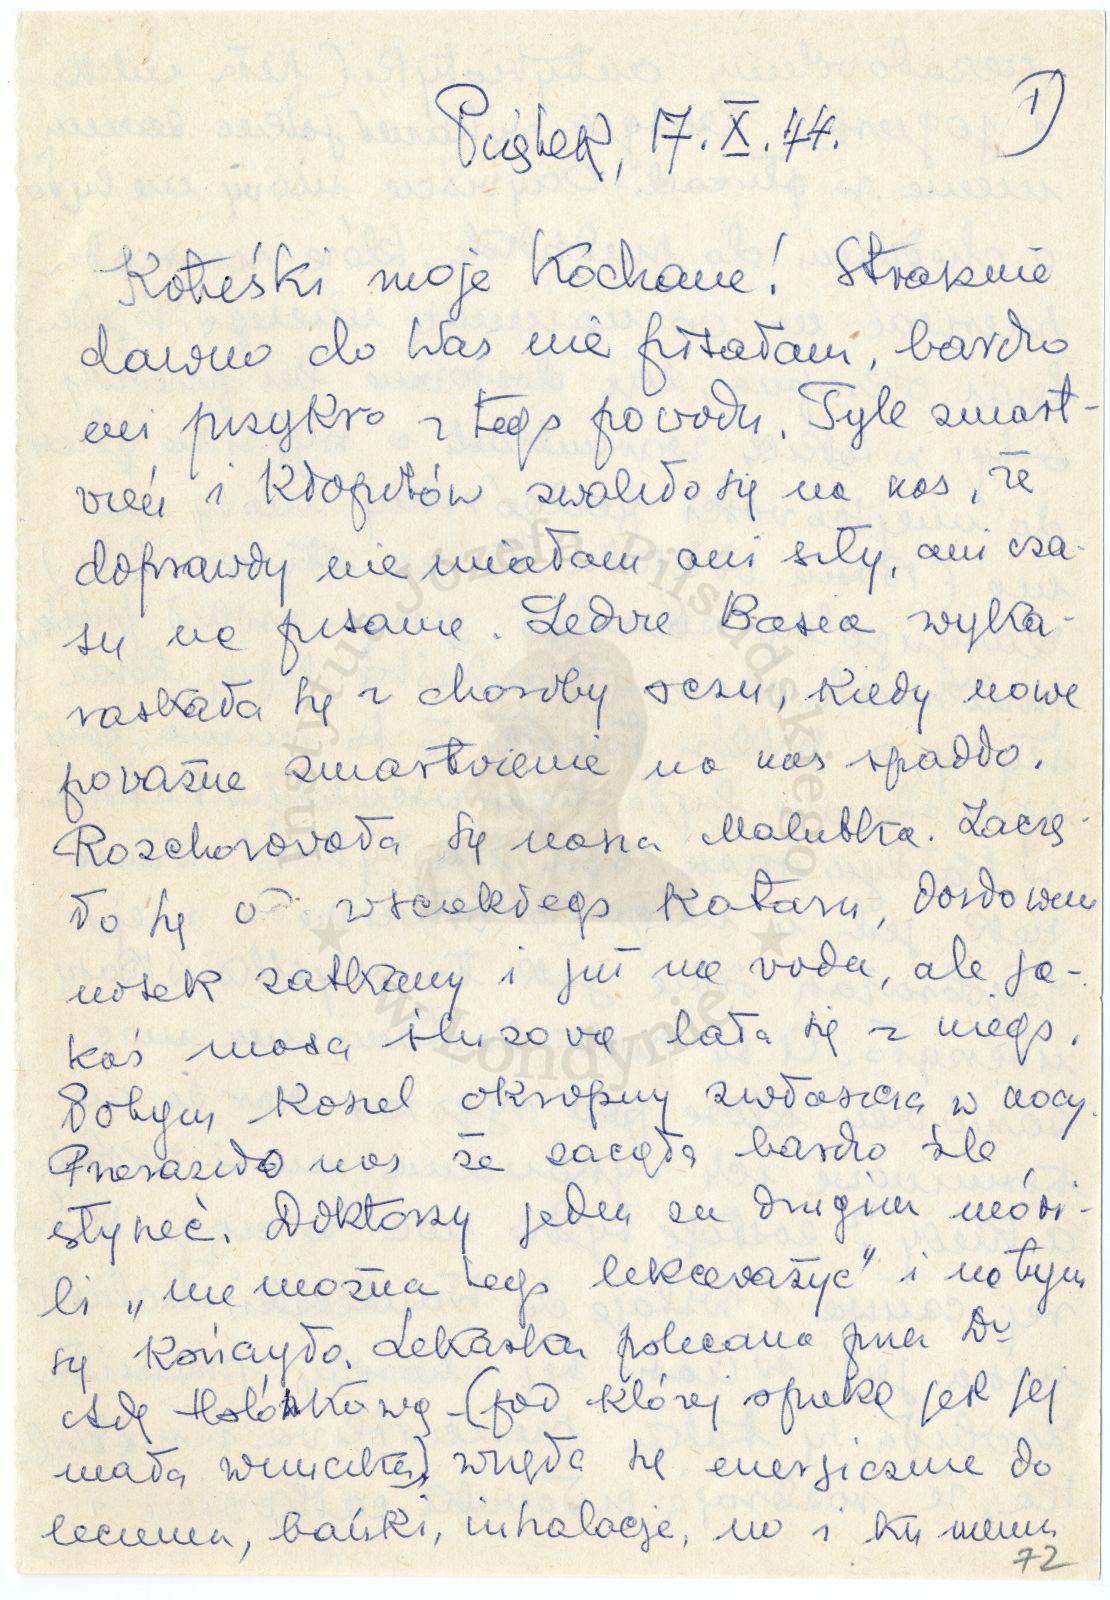 I)
Piątek, 17.X.77.
Koteńki moje Kochane! Strasznie
dawno do Was nie pisałam, bardzo
mi przykro z tego powodu. Tyle zmart-
wień i kłopotów zwaliło się na nas, że
doprawdy nie miałam ani siły, ani cza-
su na pisanie. Ledwie Basia wyka-
raskała się z choroby oczu, kiedy nowe
poważne zmartwienie na nas spadło.
Rozchorowała się nasza Malutka. Zaczę-
ło się od wściekłego kataru, dosłownie
nosek zatkany i już nie woda, ale ja-
kaś masa śluzowa lała się z niego.
Potym kaszel okropny zwłaszcza w nocy.
Przeraziło nas że zaczęła bardzo źle
słyszeć. Doktorzy jeden za drugim mówi-
li „nie można tego lekceważyć" i na tym
się kończyło. Lekarka polecana przez Dr
Adę (pod której opieką jest jej
mała wnuczka) wzięła się energicznie do
leczenia, bańki, inhalacje, no i ku memu
72
Instytut Józefa Piłsudskiego
w Londynie